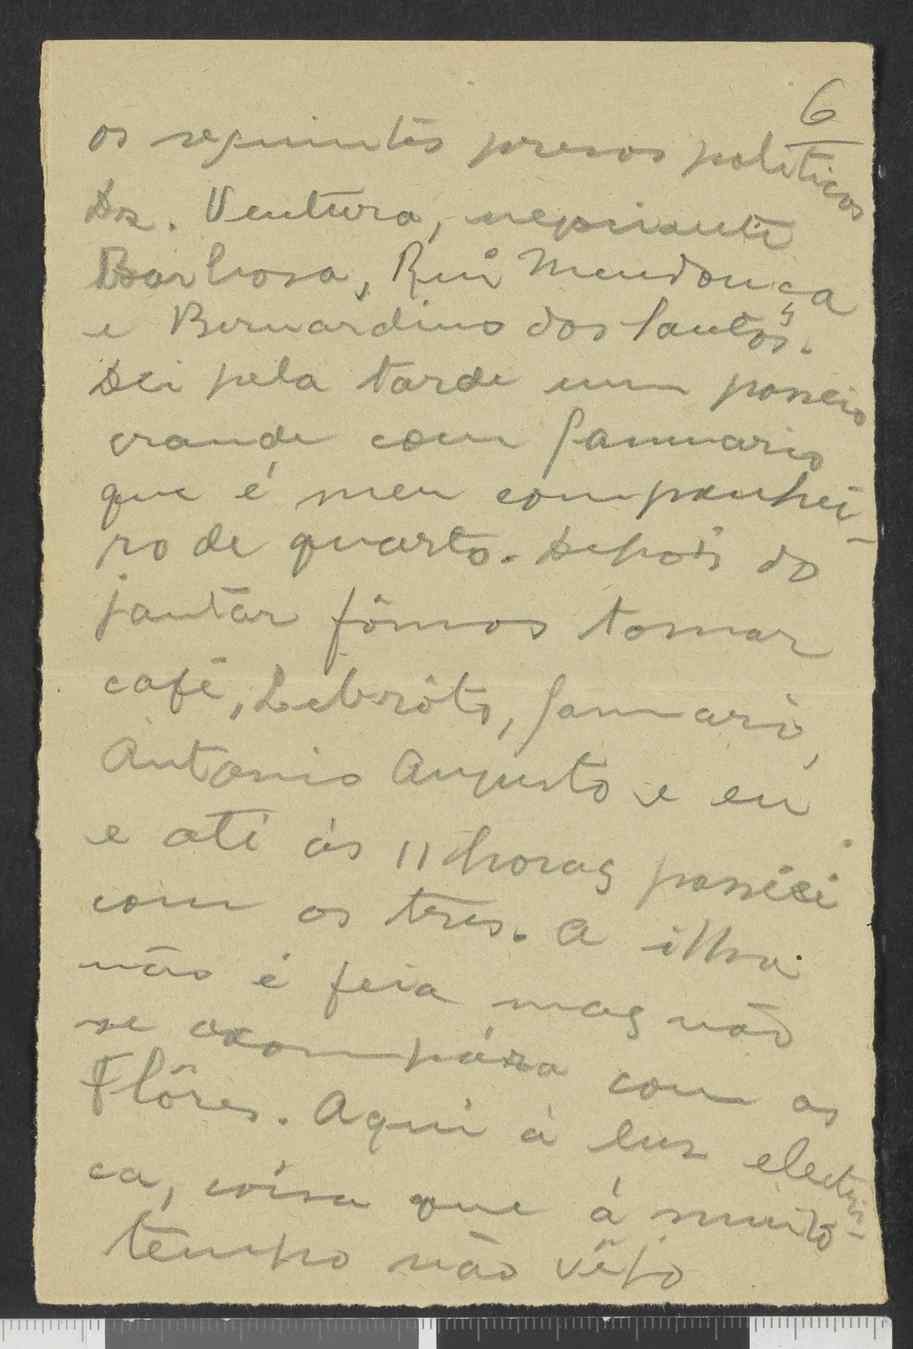 6
os seguintes presos politicos
Dr. Ventura,
Barbosa, Rui Mendonça
e Bernardino dos Santos.
Dei pela tarde um passeio
grande com Januario
que é meu companhei-
ro de quarto. Depois do
jantar fômos tomar
café, Lebrôto, Januario,
Antonio Augusto e eu
e até ás 11 horas passiei
com os tres. A ilha
não é feia mas não
se acompára com as
Flôres. Aqui á luz electri-
ca, coisa que á muito
tempo não vêjo